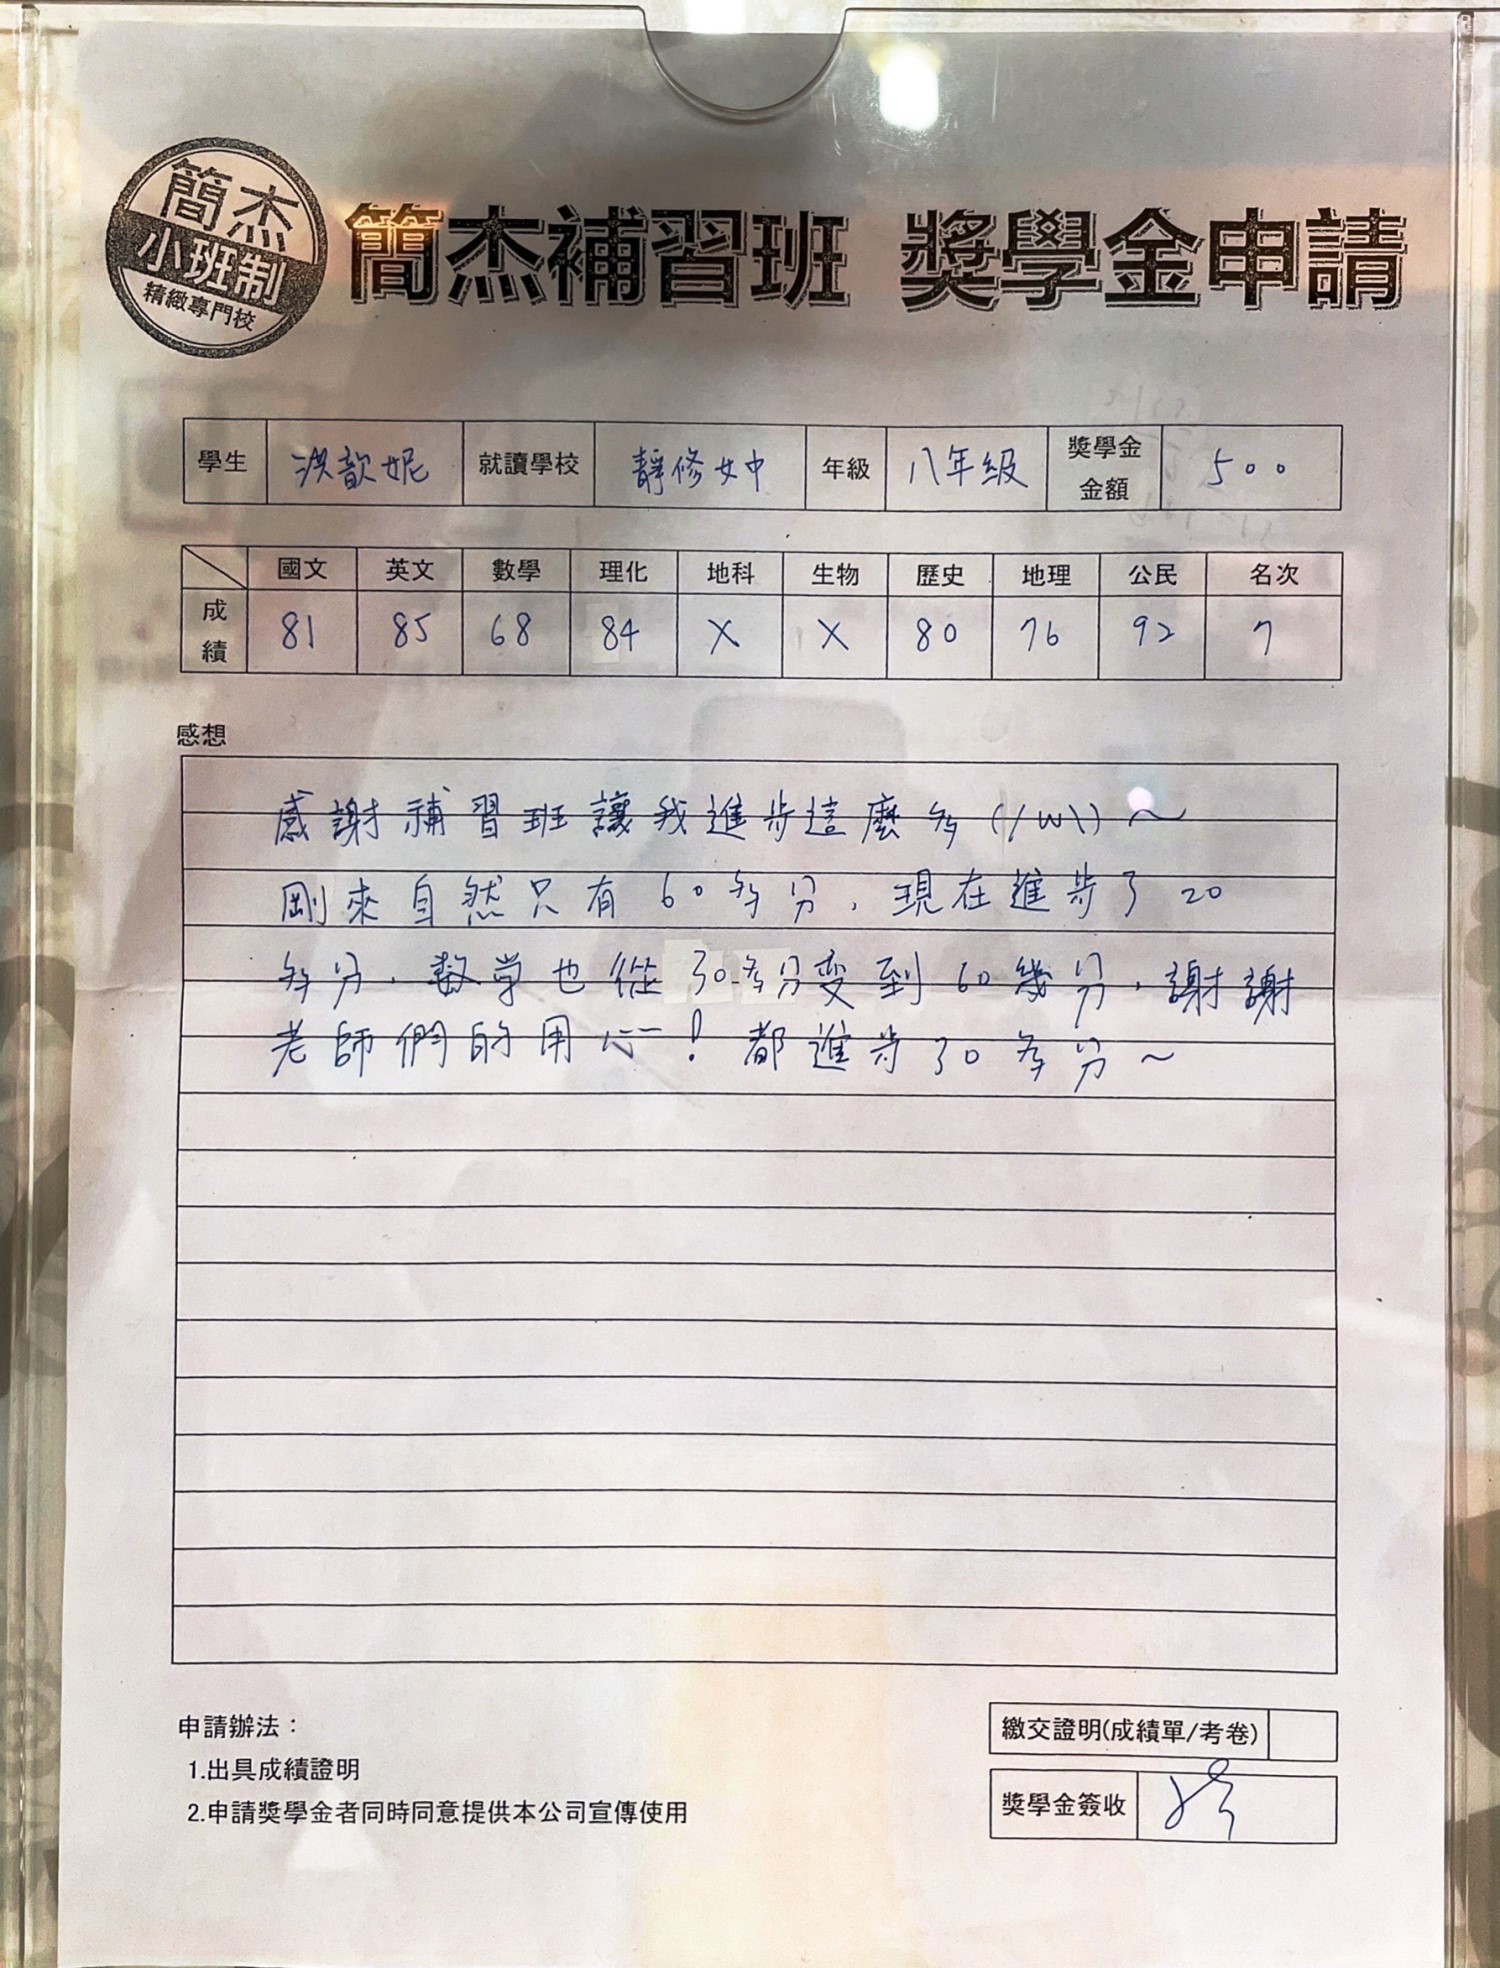 簡杰
小班制
精緻專門校
簡杰補習班 獎學金申請
學生 洪歆妮 就讀學校 靜修女中 年級 八年級 獎學金金額 500
國文 英文 數學 理化 地科 生物 歷史 地理 公民 名次
成績 81 85 68 84 X X 80 76 92 7
感想
感謝補習班讓我進步這麼多(/w\)～
剛來自然只有60多分，現在進步了20
多分，数学也從30多分变到60幾分，謝謝
老師們的用心！都進步30多分～
申請辦法：
1.出具成績證明
2.申請獎學金者同時同意提供本公司宣傳使用
繳交證明(成績單/考卷)
獎學金簽收